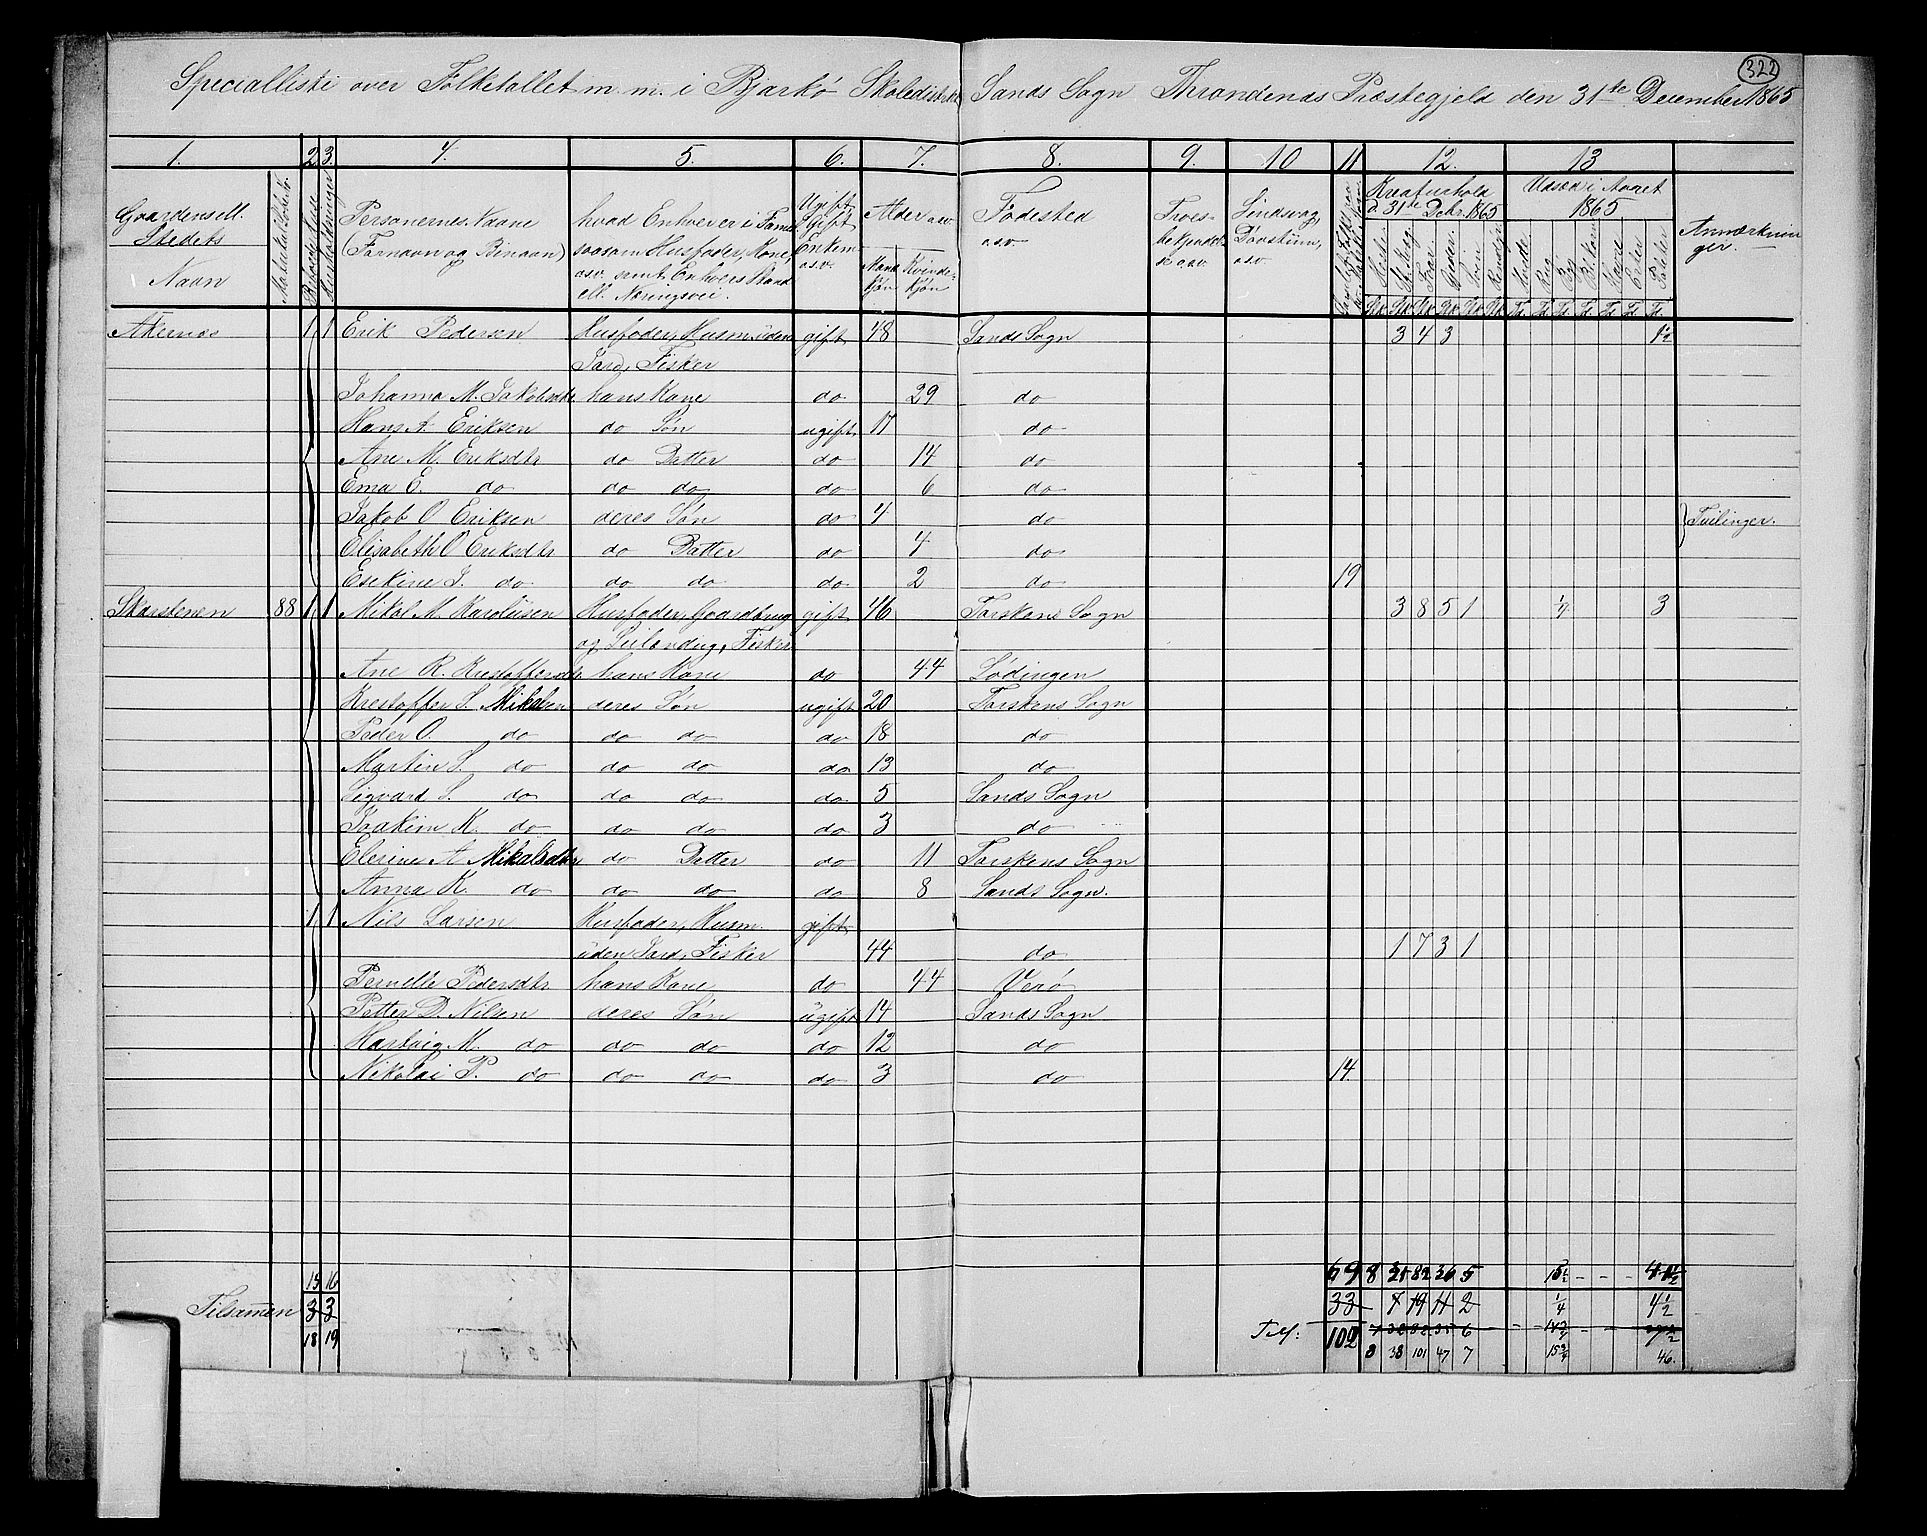 322
Specialliste over Folketallet m. m. i Bjarkö Skoledistrikt Sands Sogn Throndenæs Præstegjeld den 31te December 1865
1. 2. 3. 4. 5. 6. 7. 8. 9. 10 11 12. 13
Gaardens ell. Stedets Navn
Matrikul Løbeno.
Beboede Huse
Huusholdninger
Personernes Navne (Fornavn og Binavn)
hvad Enhver er i Familien saasom Husfader, Kone, osv. samt Enhvers Stand ell. Næringsvei.
Ugift Gift Enkem. o.s.v.
Alder osv.
Mand kjøn
Kvinde- kjøn
Fødested osv
Troes- bekjendelse osv.
Sindsvag, Døvstum, osv.
Kreaturhold d. 31te Decbr. 1865
Udsæd i Aaret 1865
Anmærknin ger.
Heste. St. Kvæg. Faar. Geder. Svin. Rensdyr. Hvede. Rug. Byg. Bl.korn. Havre. Erter. Poteter
Akernes 1 1 Erik Pedersen Husfader, Husm. uden gift 48 Sands Sogn 3 4 3 1½
Jord, Fisker
Johanna M. Jakobsdtr hans Kone do 29 do
Hans A. Eriksen do Søn ugift 17 do
Ane M. Eriksdtr do Datter do 14 do
Ema E. do do do do 6 do
Jakob O Eriksen deres Søn do 4 do } Tvilinger.
Elisabeth O Eriksdtr do Datter do 4 do
Esekine J. do do do do 2 do 19
Skarstenen 88 1 1 Mikal M. Karoliusen Husfader, Gaardbrug gift 46 Torskens Sogn 3 8 5 1 ¼ 3
og Leilænding, Fisker
Ane R. Kristoffersdtr hans Kone do 44 Lødingen
Krestoffer S. Mikalsen deres Søn ugift 20 Torskens Sogn
Peder O. do do do do 18 do
Martin S. do do do do 13 do
Sigvard S. do do do do 5 Sands Sogn
Joakim K. do do do do 3 do
Elerine A Mikalsdtr do Datter do 11 Torskens Sogn
Anna K. do do do do 8 Sands Sogn.
1 1 Nils Larsen Husfader, Husm. gift
uden Jord, Fisker 44 do 1 7 3 1
Pernelle Pedersdtr hans Kone do 44 Verø
Petter D. Nilsen deres Søn ugift 14 Sands Sogn
Hartvig M. do do do do 12 do
Nikolai P. do do do do 3 do 14
15 16 69 8 31 82 36 5 15½ - - - 41½
Tilsamen 3 3 33 - 7 19 11 2 ¼ 4½
18 19 Tils: 102 7 38 82 35 6 - -
8 38 101 47 7 15¾ 46.